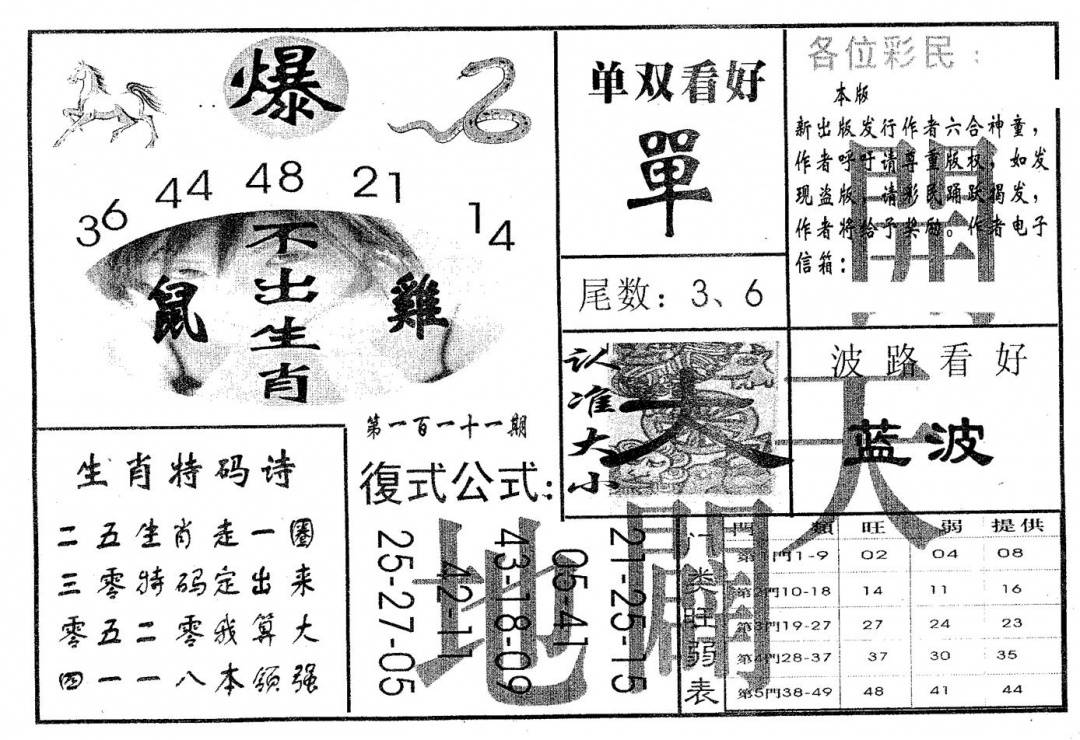 爆
36 44 48 21 14
不出生肖
鼠
雞
单双看好
單
尾数：3、6
各位彩民：
本版
新出版发行作者六合神童，
作者呼吁请尊重版权，如发
现盗版，请彩民踊跃揭发，
作者将给予奖励。作者电子
信箱：
開天
闢地
认准大小
大
波路看好
蓝波
第一百一十一期
復式公式：
25-27-05
42-11
43-18-09
05-41
21-25-15
生肖特码诗
二五生肖走一圈
三零特码定出来
零五二零我算大
四一一八本领强
门类旺弱表
門類 旺 弱 提供
第1門1-9 02 04 08
第2門10-18 14 11 16
第3門19-27 27 24 23
第4門28-37 37 30 35
第5門38-49 48 41 44